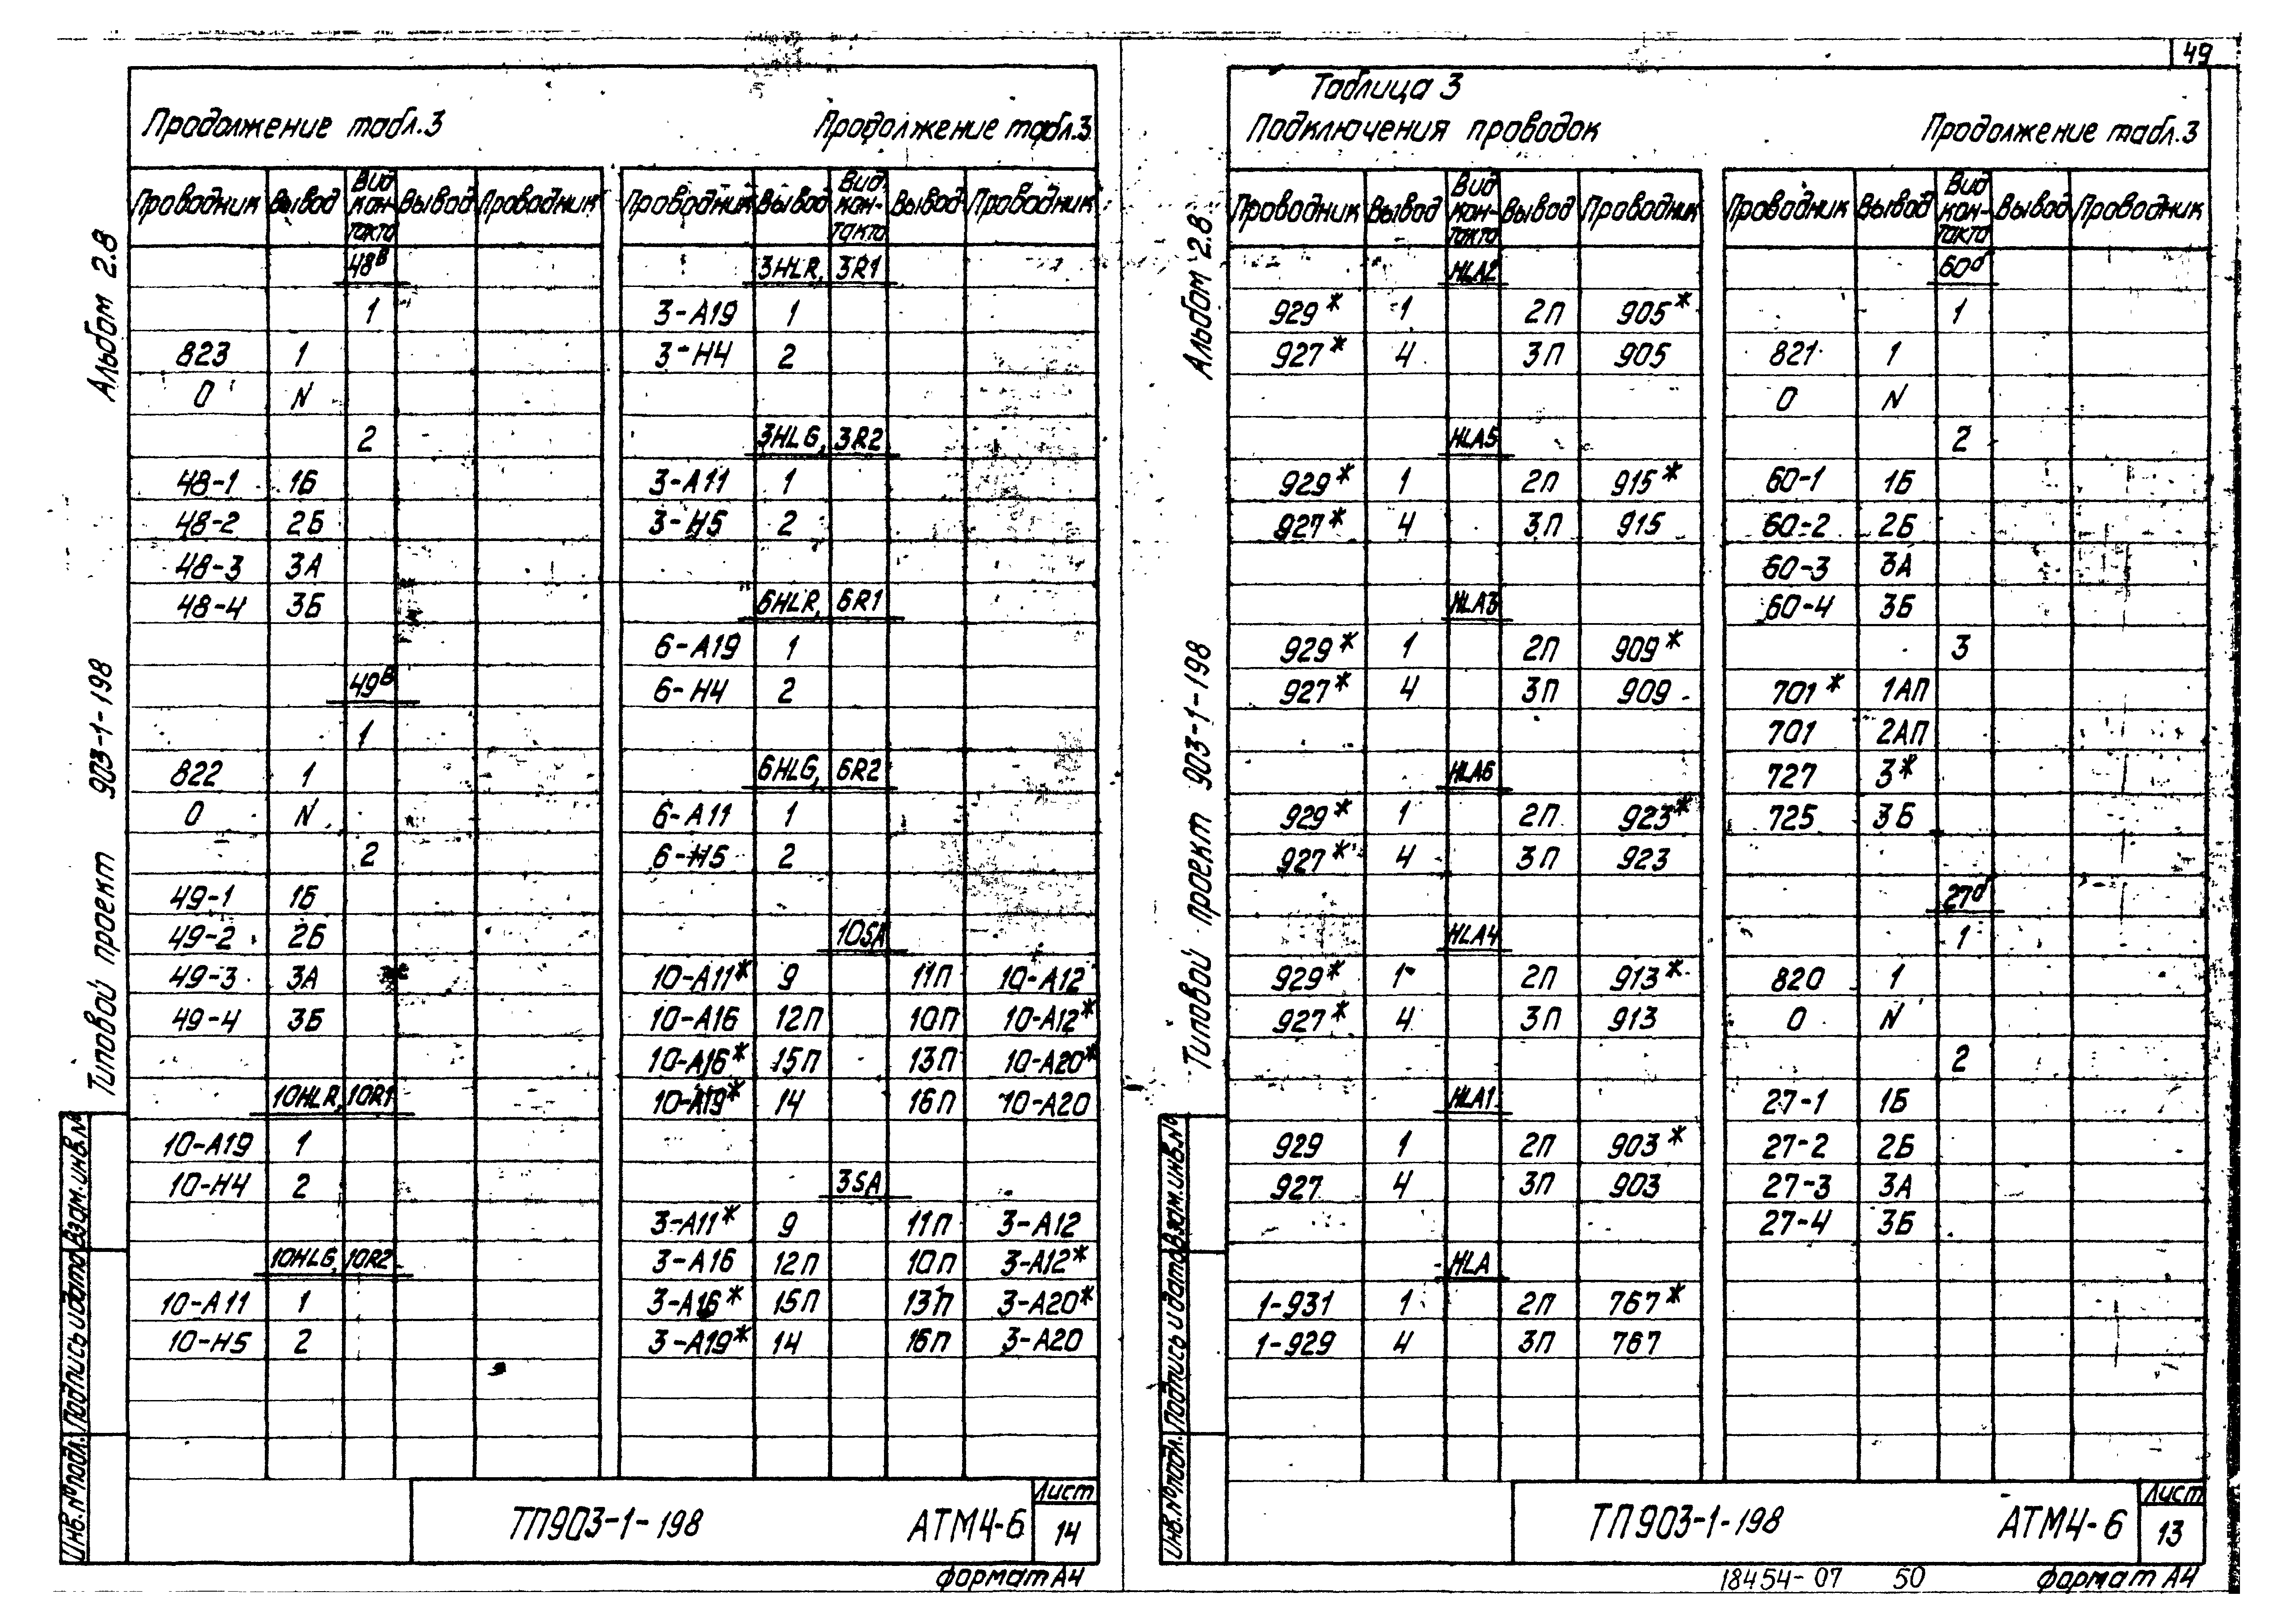 49
Продолжение табл.3 Продолжение табл.3
Проводник Вывод Вид контакта Вывод Проводник Проводник Вывод Вид контакта Вывод Проводник
48в 3HLR, 3R1
1 3-А19 1
823 1 3-Н4 2
0 N
2 3HLG, 3R2
48-1 1Б 3-А11 1
48-2 2Б 3-Н5 2
48-3 3А
48-4 3Б 6HLR, 6R1
6-А19 1
49в 6-Н4 2
1
822 1 6HLG, 6R2
0 N 6-А11 1
2 6-Н5 2
49-1 1Б
49-2 2Б 10SA
49-3 3А 10-А11* 9 11П 10-А12
49-4 3Б 10-А16 12П 10П 10-А12*
10-А16* 15П 13П 10-А20*
10HLR, 10R1 10-А19* 14 16П 10-А20
10-А19 1
10-Н4 2 3SA
3-А11* 9 11П 3-А12
10HLG, 10R2 3-А16 12П 10П 3-А12*
10-А11 1 3-А16* 15П 13П 3-А20*
10-Н5 2 3-А19* 14 16П 3-А20
ТП903-1-198 АТМ4-6 Лист 14
формат А4
Альбом 2.8
Типовой проект 903-1-198
Инв.№подл. Подпись и дата Взам.инв.№
Таблица 3
Подключения проводок Продолжение табл.3
Проводник Вывод Вид контакта Вывод Проводник Проводник Вывод Вид контакта Вывод Проводник
HLA2 60б
929* 1 2П 905* 1
927* 4 3П 905 821 1
0 N
HLA5 2
929* 1 2П 915* 60-1 1Б
927* 4 3П 915 60-2 2Б
60-3 3А
HLA3 60-4 3Б
929* 1 2П 909* 3
927* 4 3П 909 701* 1АП
701 2АП
HLA6 727 3*
929* 1 2П 923* 725 3Б
927* 4 3П 923
27б
HLA4 1
929* 1 2П 913* 820 1
927* 4 3П 913 0 N
2
HLA1 27-1 1Б
929 1 2П 903* 27-2 2Б
927 4 3П 903 27-3 3А
27-4 3Б
HLA
1-931 1 2П 767*
1-929 4 3П 767
ТП903-1-198 АТМ4-6 Лист 13
18454-07 50 формат А4
Альбом 2.8
Типовой проект 903-1-198
Инв.№подл. Подпись и дата Взам.инв.№